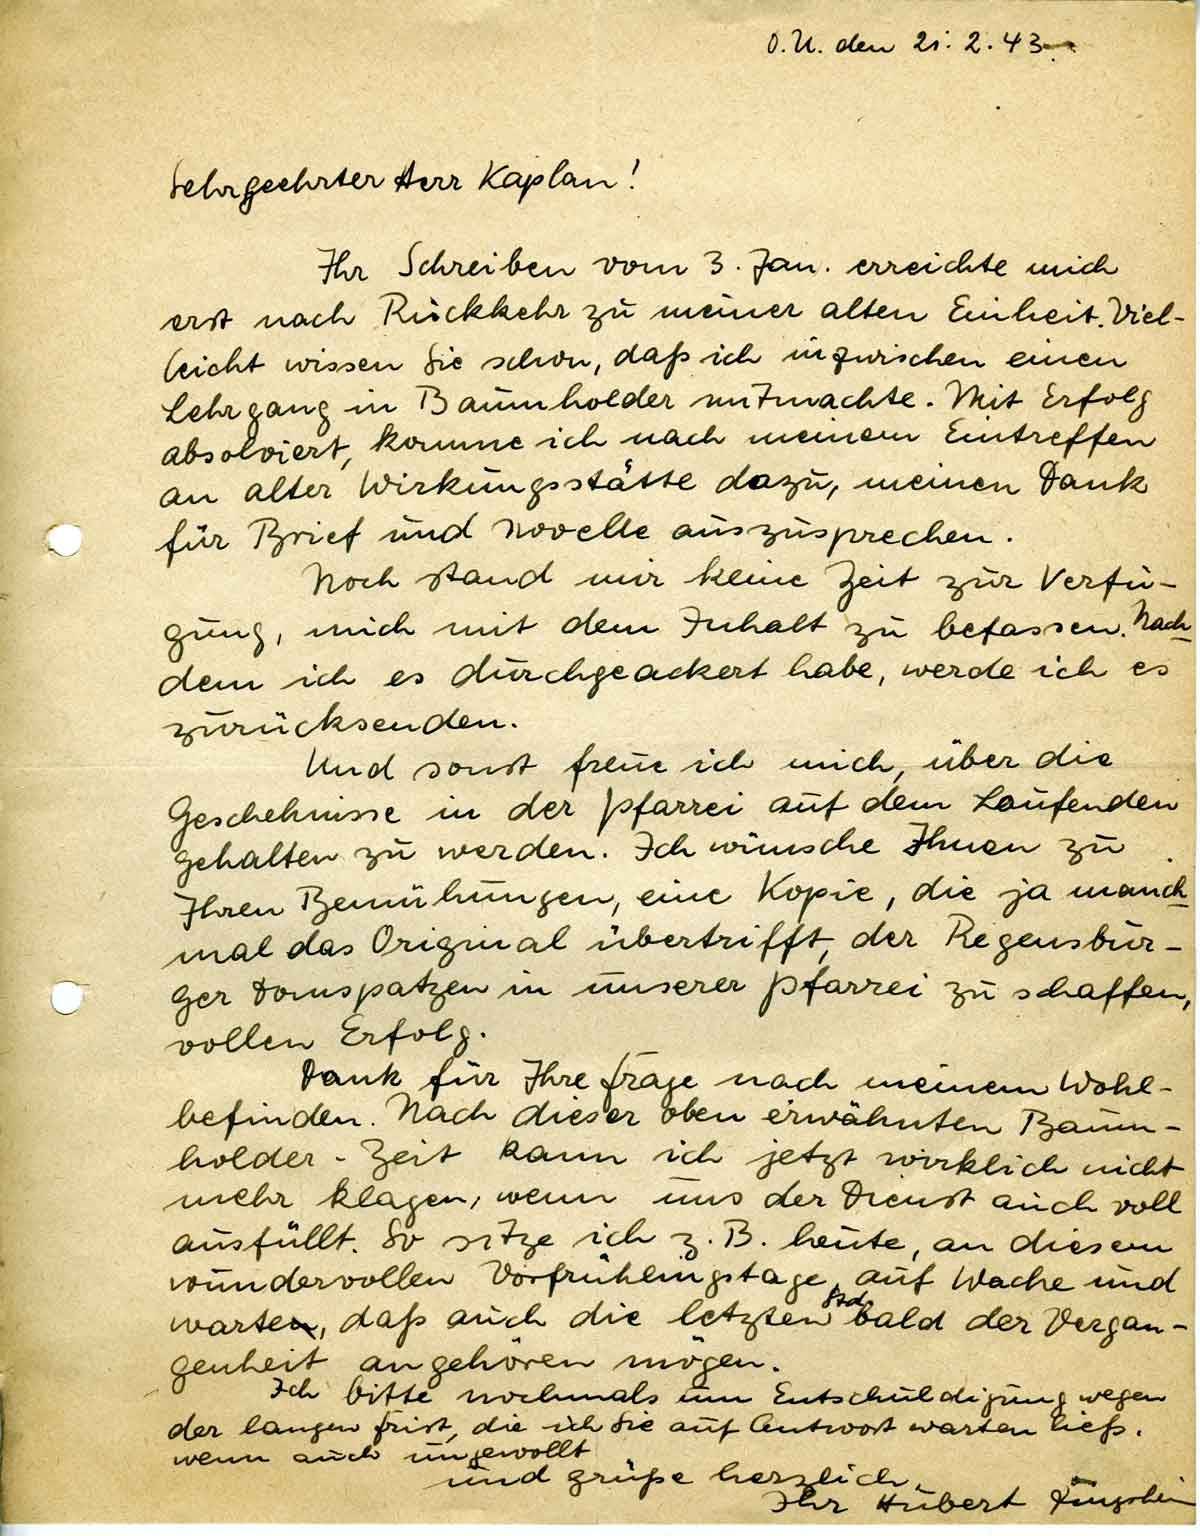 O.U. den 21.2.43.
Sehrgeehrter Herr Kaplan!
Ihr Schreiben vom 3. Jan. erreichte mich
erst nach Rückkehr zu meiner alten Einheit. Viel-
leicht wissen Sie schon, daß ich inzwischen einen
Lehrgang in Baumholder mitmachte. Mit Erfolg
absolviert, komme ich nach meinem Eintreffen
an alter Wirkungsstätte dazu, meinen Dank
für Brief und Novelle auszusprechen.
Noch stand mir keine Zeit zur Verfü-
gung, mich mit dem Inhalt zu befassen. Nach
dem ich es durchgeackert habe, werde ich es
zurücksenden.
Und sonst freue ich mich, über die
Geschehnisse in der Pfarrei auf dem Laufenden
gehalten zu werden. Ich wünsche Ihnen zu
Ihren Bemühungen, eine Kopie, die ja manch
mal das Original übertrifft, der Regensbur-
ger Domspatzen in unserer Pfarrei zu schaffen,
vollen Erfolg.
Dank für Ihre Frage nach meinem Wohl-
befinden. Nach dieser oben erwähnten Baum-
holder-Zeit kann ich jetzt wirklich nicht
mehr klagen, wenn uns der Dienst auch voll
ausfüllt. So sitze ich z.B. heute, an diesem
wundervollen Vorfrühlingstage, auf Wache und
warte, daß auch die letzten Std. bald der Vergan-
genheit angehören mögen.
Ich bitte nochmals um Entschuldigung wegen
der langen Frist, die ich Sie auf Antwort warten ließ.
wenn auch ungewollt
und grüße herzlich
Ihr Hubert